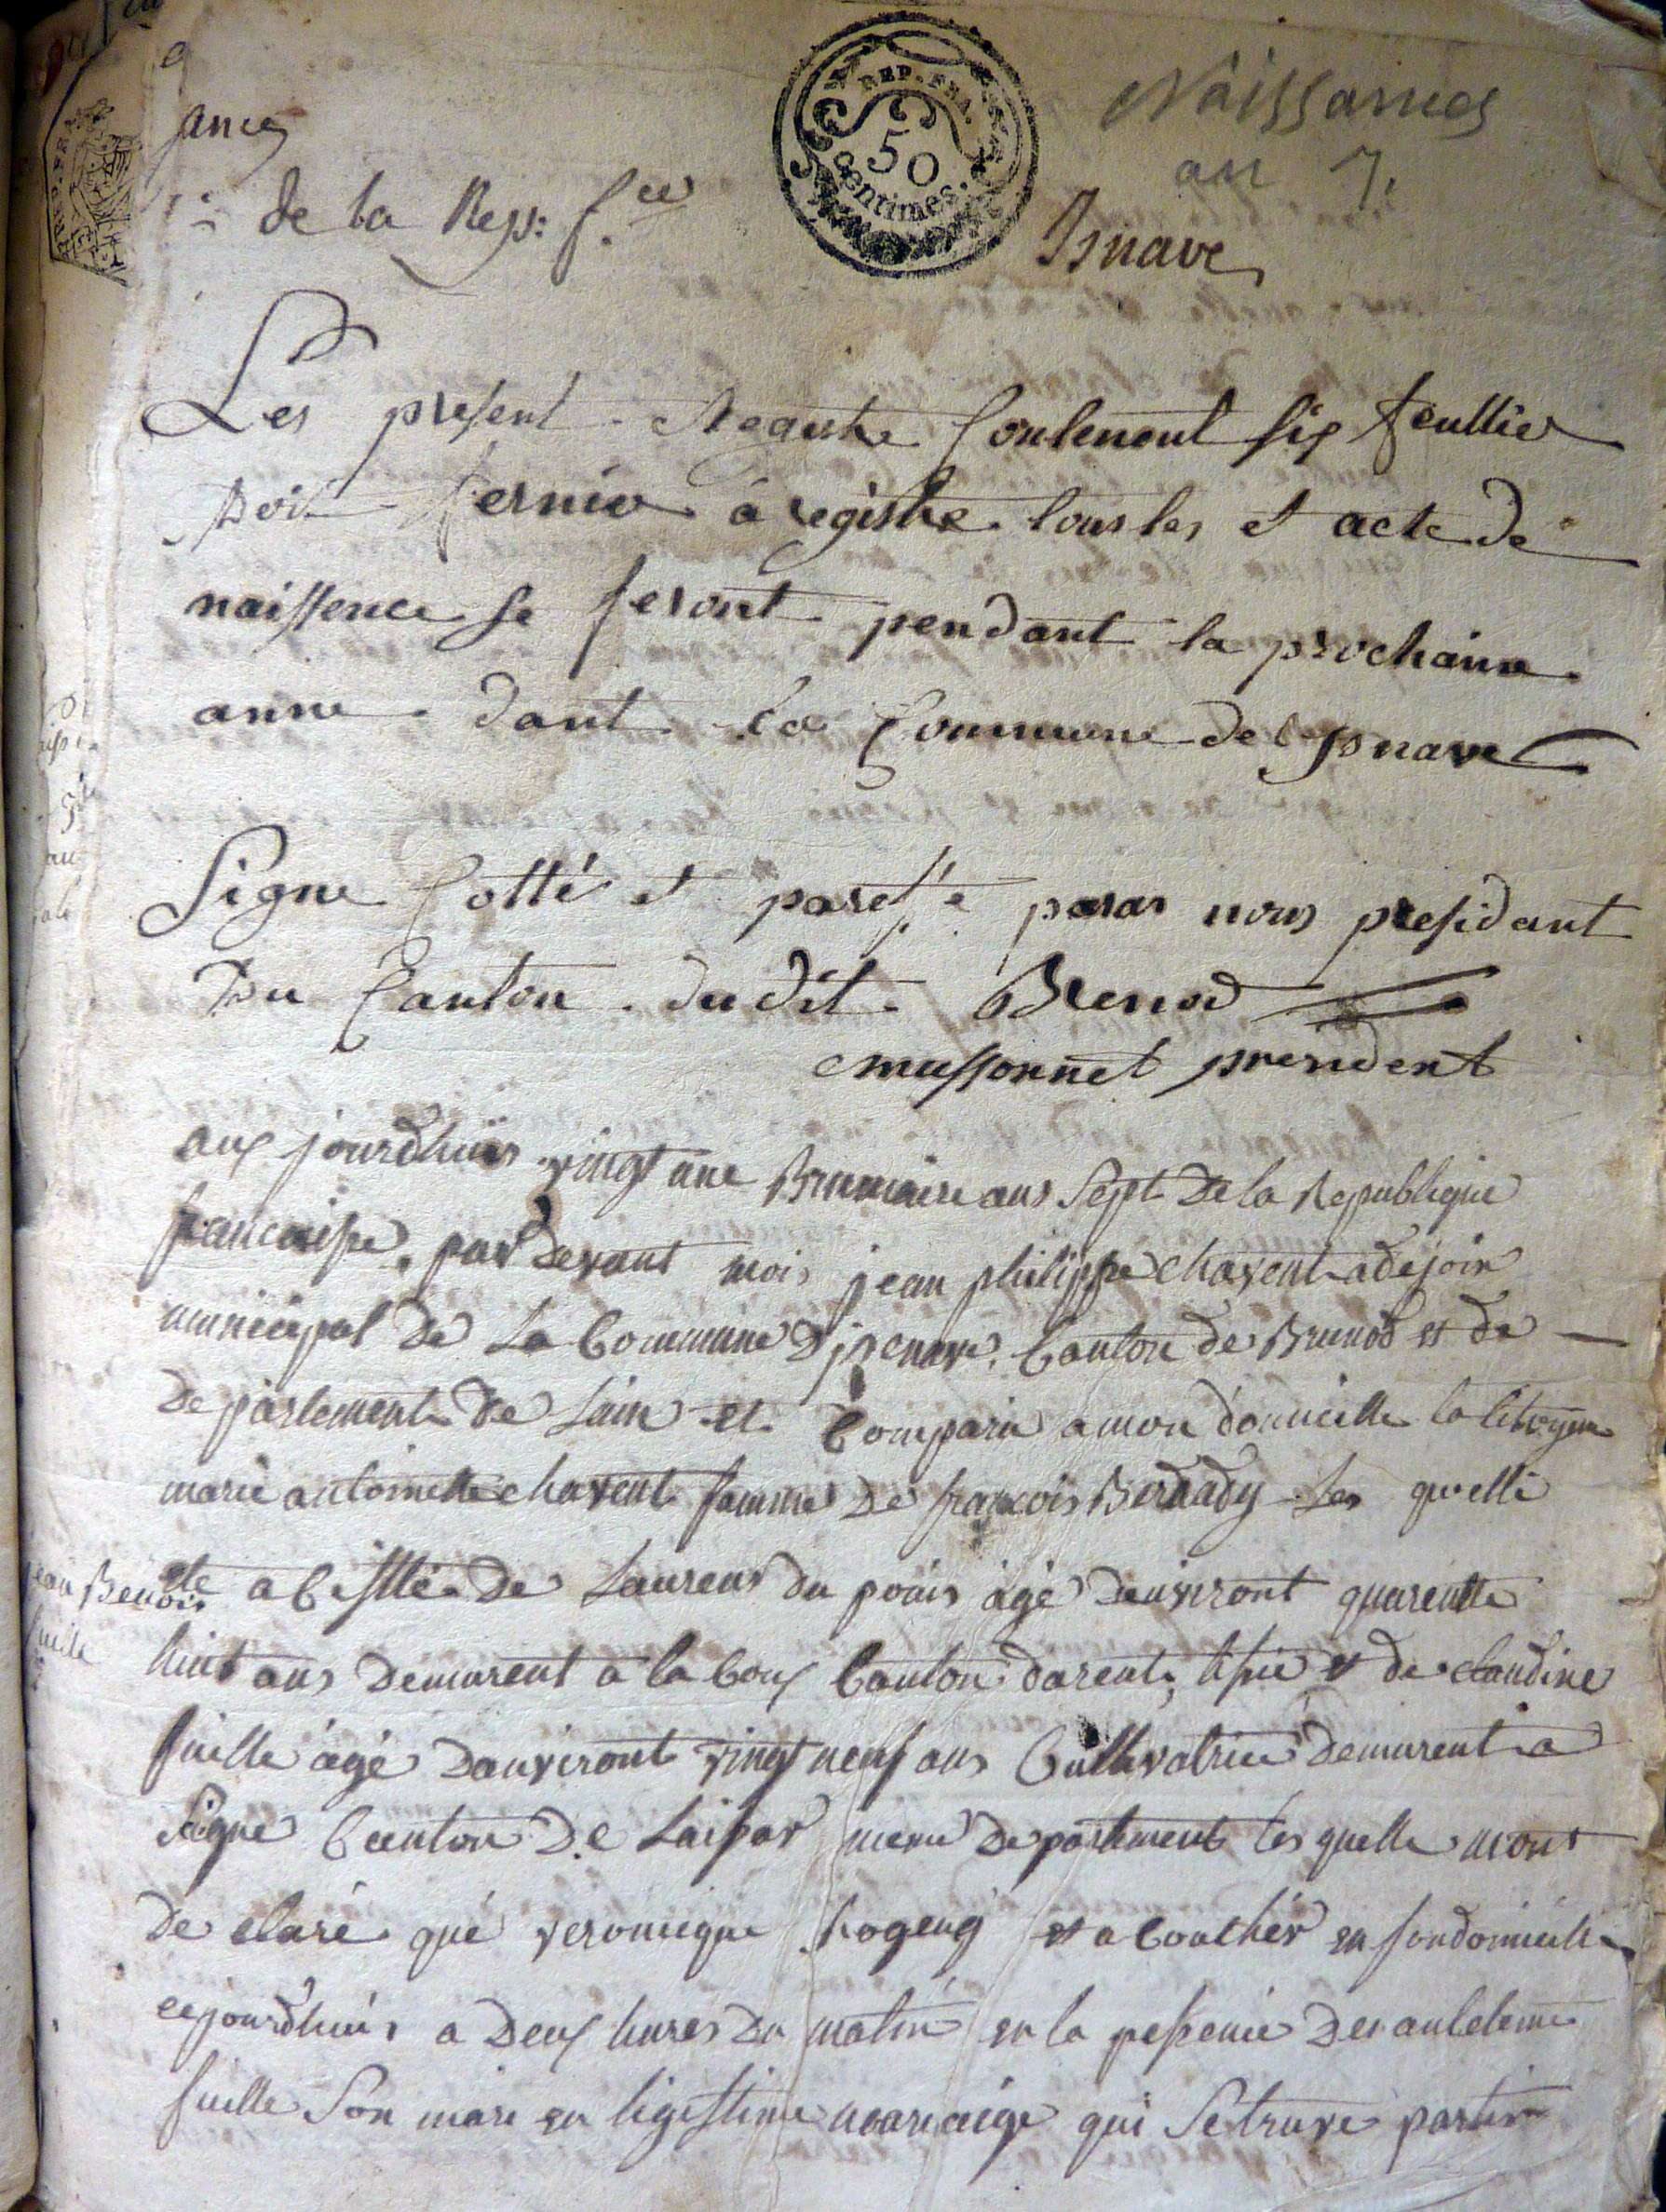 Naissances
an 7.
REP. FRA.
50
centimes.
ances
de la Rep: f.ce
Isnave
Les present Regestre Contenent six feullier
Doit servier à registre tous les et acte de
naissence se feront pendant la prochaine
anne dant la Commune de Isnave
Signe Cotté et paresfé parar nous president
Du Canton dudit Brenod
mussonnet president
aux jourdhuis vingt une Brumaire ans Sept De la Republique
francaisse, par Devant mois jean philippe chavent adejoin
municipal De La Commune D'isenave, Canton de Brunod et de
Departement De Lain et Comparu a mon domicille la Citoyene
marie antoinette chavent famme De francois Bernady Les quelle
ete a Cistté De Laurent du pouis agé Denviront quarentte
huit ans Demurent a la Coux Canton darent, et de claudine
fuille agé Danviront vingt neuf ans Cultivatrice Demurent a
Signe Canton De Laipar meme Departement les quelle mont
De claré qué veronique hogeng et a Couchér en son domicille
cejourdhuis a Deux hures Du matin en la pessence De anteleme
fuille Son mari en ligestime marieige qui Se truve partir
jean Benois
fuille